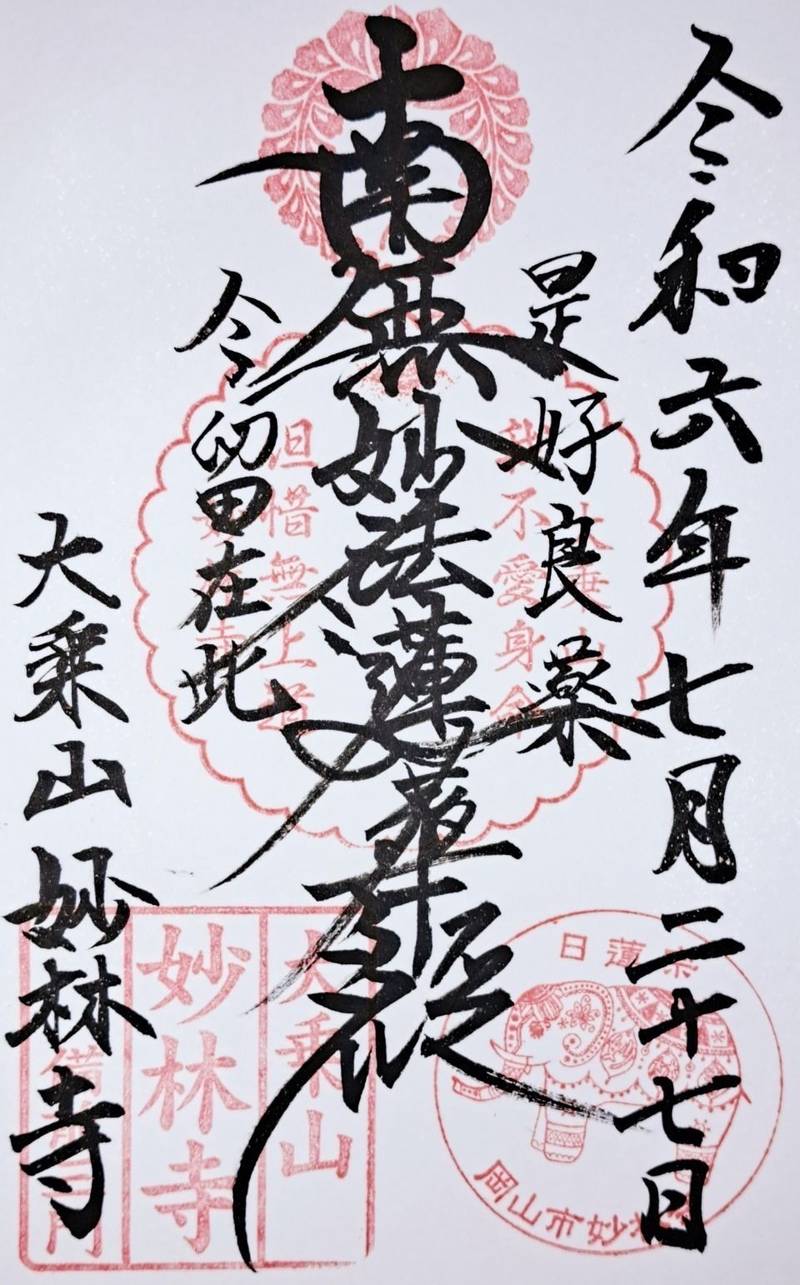 令和六年七月二十七日
是好良薬
南無妙法蓮華経
今留在此
大乗山妙林寺
我不愛身命
但惜無上道
日蓮宗
岡山市妙林寺
大乗山
妙林寺